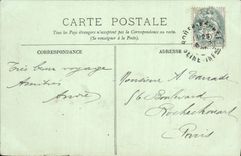 CARTE POSTALE
Tous les Pays étrangers n'acceptent pas la Correspondance
(Se renseigner à la Poste).
CORRESPONDANCE
ADRESSE
Très bon voyage
Amitiés
André
Monsieur A
56 Boulevard
Rochechouart
Paris